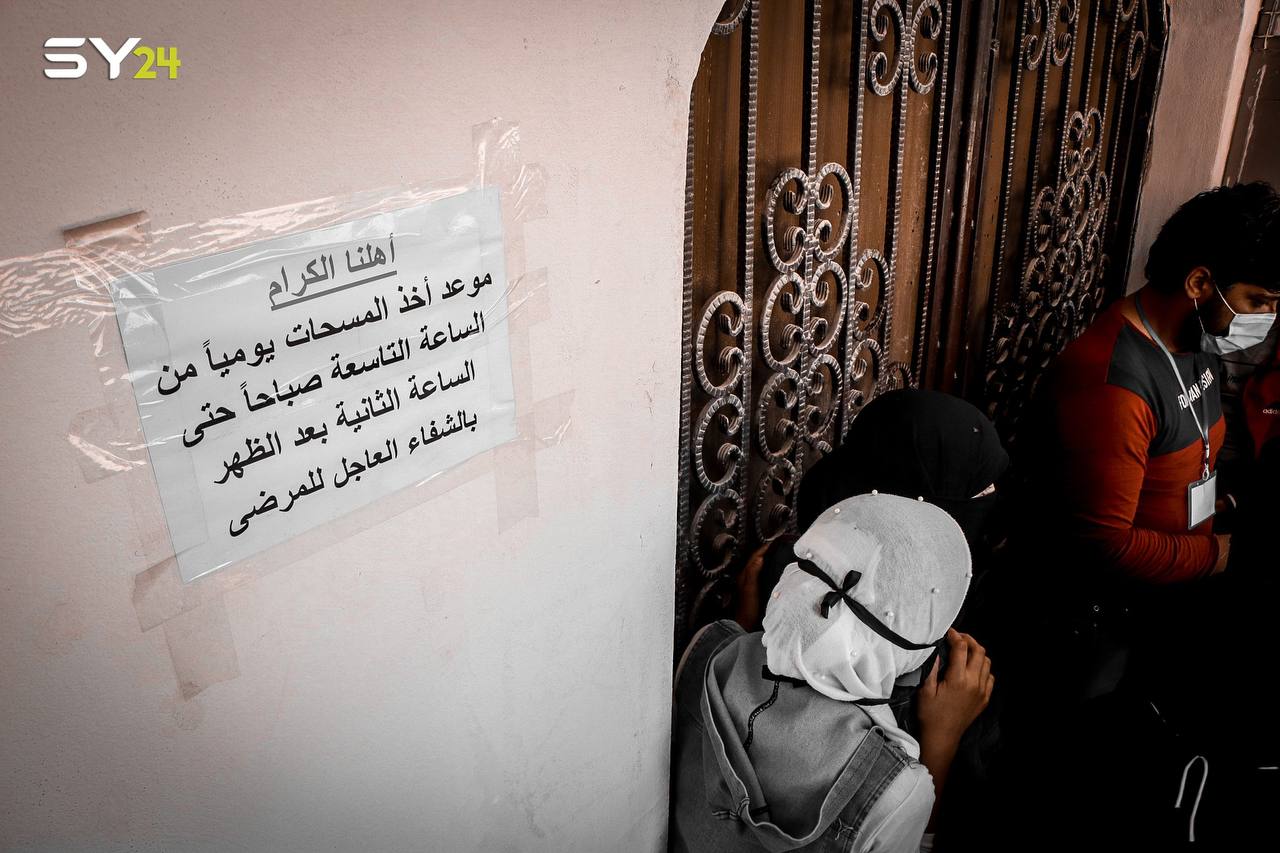 SY24
أهلنا الكرام
موعد أخذ المسحات يومياً من
الساعة التاسعة صباحاً حتى
الساعة الثانية بعد الظهر
بالشفاء العاجل للمرضى